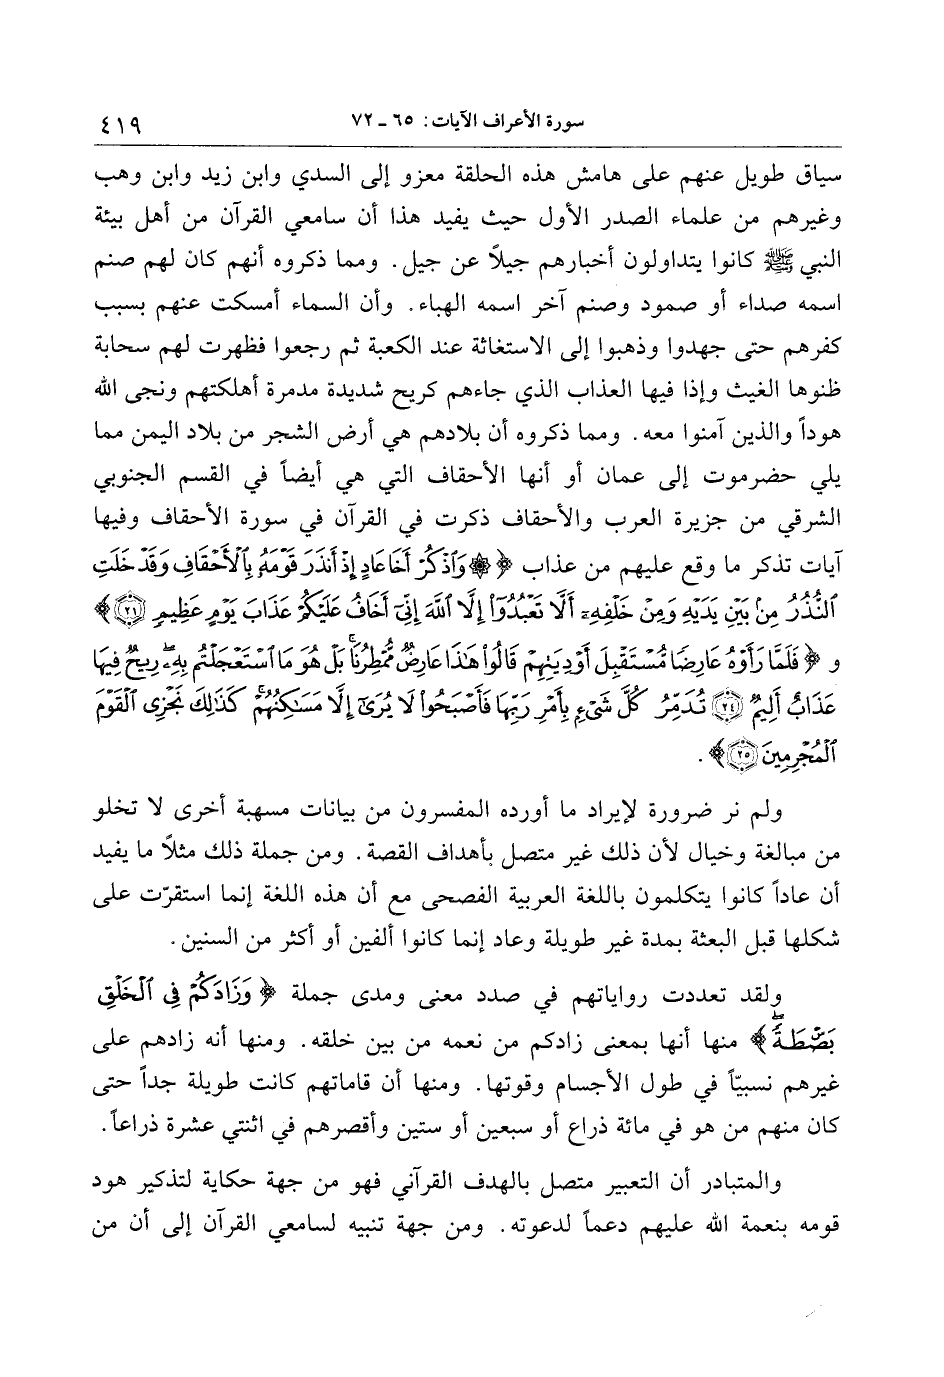 سورة الأعراف الآيات: ٦٥ ـ ٧٢ ٤١٩
سياق طويل عنهم على هامش هذه الحلقة معزو إلى السدي وابن زيد وابن وهب
وغيرهم من علماء الصدر الأول حيث يفيد هذا أن سامعي القرآن من أهل بيئة
النبي ﷺ كانوا يتداولون أخبارهم جيلاً عن جيل. ومما ذكروه أنهم كان لهم صنم
اسمه صداء أو صمود وصنم آخر اسمه الهباء. وأن السماء أمسكت عنهم بسبب
كفرهم حتى جهدوا وذهبوا إلى الاستغاثة عند الكعبة ثم رجعوا فظهرت لهم سحابة
ظنوها الغيث وإذا فيها العذاب الذي جاءهم كريح شديدة مدمرة أهلكتهم ونجى الله
هوداً والذين آمنوا معه. ومما ذكروه أن بلادهم هي أرض الشجر من بلاد اليمن مما
يلي حضرموت إلى عمان أو أنها الأحقاف التي هي أيضاً في القسم الجنوبي
الشرقي من جزيرة العرب والأحقاف ذكرت في القرآن في سورة الأحقاف وفيها
آيات تذكر ما وقع عليهم من عذاب ﴿ ۞ وَٱذْكُرْ أَخَا عَادٍ إِذْ أَنذَرَ قَوْمَهُۥ بِٱلْأَحْقَافِ وَقَدْ خَلَتِ
ٱلنُّذُرُ مِنۢ بَيْنِ يَدَيْهِ وَمِنْ خَلْفِهِۦٓ أَلَّا تَعْبُدُوٓا۟ إِلَّا ٱللَّهَ إِنِّىٓ أَخَافُ عَلَيْكُمْ عَذَابَ يَوْمٍ عَظِيمٍ ۝٢١ ﴾
و ﴿ فَلَمَّا رَأَوْهُ عَارِضًا مُّسْتَقْبِلَ أَوْدِيَتِهِمْ قَالُوا۟ هَٰذَا عَارِضٌ مُّمْطِرُنَا ۚ بَلْ هُوَ مَا ٱسْتَعْجَلْتُم بِهِۦ ۖ رِيحٌ فِيهَا
عَذَابٌ أَلِيمٌ ۝٢٤ تُدَمِّرُ كُلَّ شَىْءٍۭ بِأَمْرِ رَبِّهَا فَأَصْبَحُوا۟ لَا يُرَىٰٓ إِلَّا مَسَٰكِنُهُمْ ۚ كَذَٰلِكَ نَجْزِى ٱلْقَوْمَ
ٱلْمُجْرِمِينَ ۝٢٥ ﴾ .
ولم نر ضرورة لإيراد ما أورده المفسرون من بيانات مسهبة أخرى لا تخلو
من مبالغة وخيال لأن ذلك غير متصل بأهداف القصة. ومن جملة ذلك مثلاً ما يفيد
أن عاداً كانوا يتكلمون باللغة العربية الفصحى مع أن هذه اللغة إنما استقرّت على
شكلها قبل البعثة بمدة غير طويلة وعاد إنما كانوا ألفين أو أكثر من السنين.
ولقد تعددت رواياتهم في صدد معنى ومدى جملة ﴿ وَزَادَكُمْ فِى ٱلْخَلْقِ
بَصْۜطَةً ۖ ﴾ منها أنها بمعنى زادكم من نعمه من بين خلقه. ومنها أنه زادهم على
غيرهم نسبيّاً في طول الأجسام وقوتها. ومنها أن قاماتهم كانت طويلة جداً حتى
كان منهم من هو في مائة ذراع أو سبعين أو ستين وأقصرهم في اثنتي عشرة ذراعاً.
والمتبادر أن التعبير متصل بالهدف القرآني فهو من جهة حكاية لتذكير هود
قومه بنعمة الله عليهم دعماً لدعوته. ومن جهة تنبيه لسامعي القرآن إلى أن من